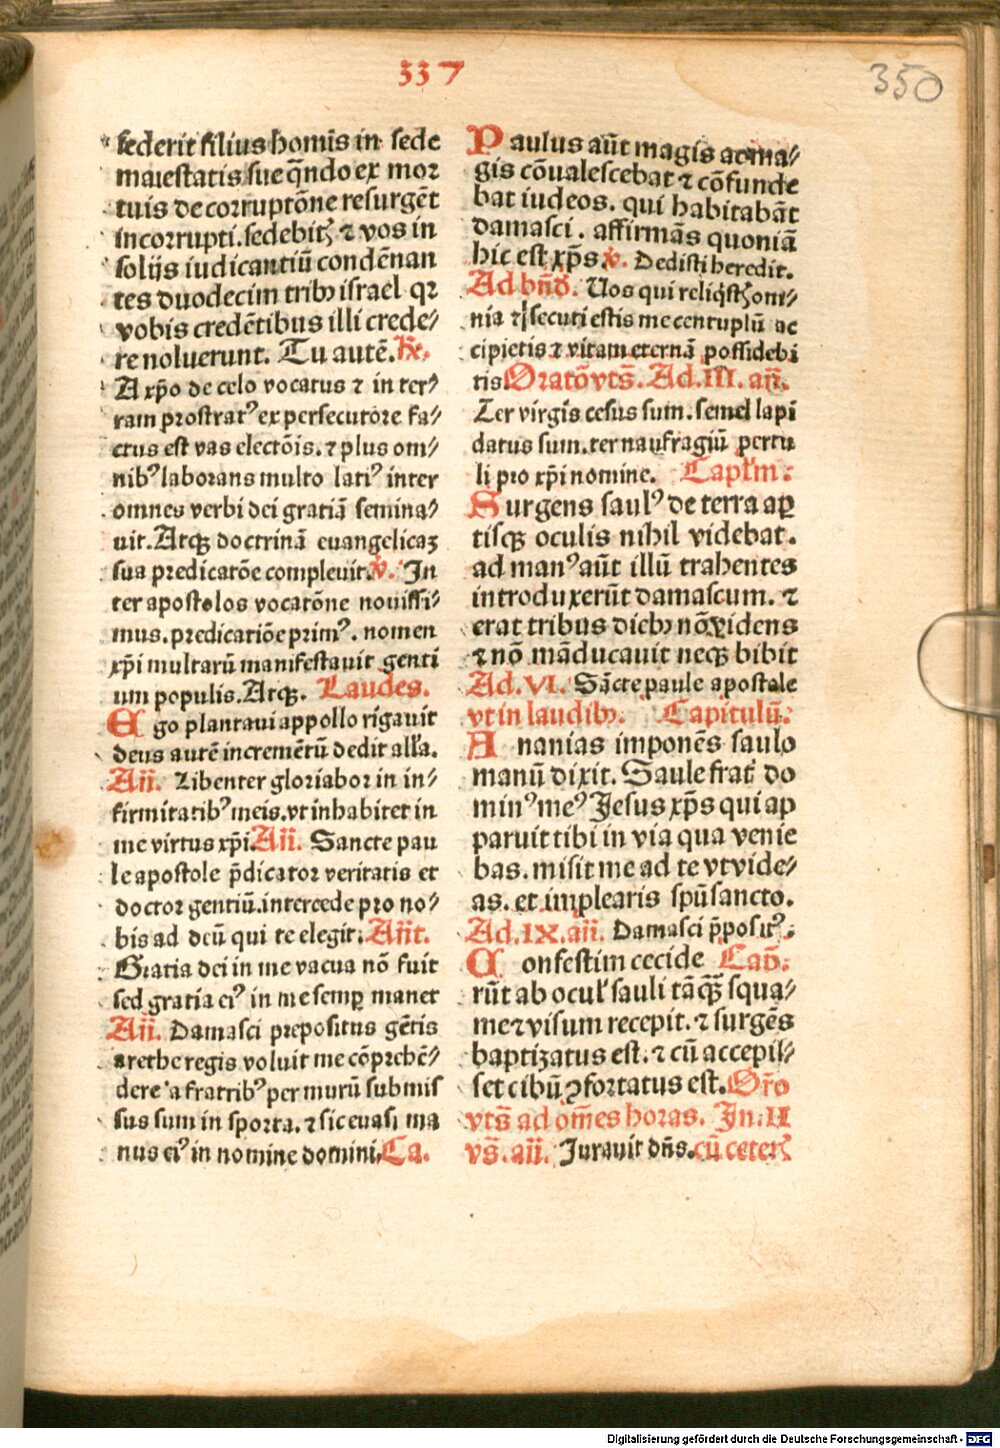 337
350
sederit filius homīs in sede
maiestatis sue qn̄do ex mor
tuis de corruptōne resurgēt
incorrupti. sedebitꝭ ⁊ vos in
solijs iudicantiū condēnan
tes duodecim tribꝫ israel qꝛ
vobis credētibus illi crede⸗
re noluerunt. Tu autē. R̄.
A xp̄o de celo vocatus ⁊ in ter⸗
ram prostratꝰ ex persecutore fa⸗
ctus est vas electōis. ⁊ plus om⸗
nibꝰ laborans multo latiꝰ inter
omnes verbi dei gratiā semina⸗
uit. Atqꝫ doctrinā euangelicaꝫ
sua predicatōe compleuit. v̄. In
ter apostolos vocatōne nouissi⸗
mus. predicatiōe primꝰ. nomen
xp̄i multarū manifestauit genti
um populis. Atqꝫ. Laudes.
Ego plantaui appollo rigauit
deus autē incremētū dedit all'a.
Añ. Libenter gloriabor in in⸗
firmitatibꝰ meis. vt inhabitet in
me virtus xp̄i. Añ. Sancte pau
le apostole p̄dicator veritatis et
doctor gentiū. intercede pro no⸗
bis ad deū qui te elegit. Añt.
Gratia dei in me vacua nō fuit
sed gratia eiꝰ in me semꝑ manet
Añ. Damasci prepositus gētis
arethe regis voluit me cōprehē⸗
dere a fratribꝰ per murū submis
sus sum in sporta. ⁊ sic euasi ma
nus eiꝰ in nomine domini. Ca.
Paulus aūt magis ac ma⸗
gis cōualescebat ⁊ cōfunde
bat iudeos. qui habitabāt
damasci. affirmās quoniā
hic est xp̄s. v̄. Dedisti heredit.
Ad bn̄d. Uos qui reliq̄stꝭ om⸗
nia ⁊ secuti estis me centuplū ac
cipietis ⁊ vitam eternā possidebi
tis Oratō vts̄. Ad. III. añ.
Ter virgis cesus sum. semel lapi
datus sum. ter naufragiū pertu
li pro xp̄i nomine. Capl'm.
Surgens saulꝰ de terra aꝑ
tisqꝫ oculis nihil videbat.
ad manꝰ aūt illū trahentes
introduxerūt damascum. ⁊
erat tribus diebꝫ nō videns
⁊ nō māducauit neqꝫ bibit
Ad. VI. Sācte paule apostole
vt in laudibꝫ. Capitulū.
Ananias imponēs saulo
manū dixit. Saule frat̄ do
minꝰ meꝰ Jesus xp̄s qui ap
paruit tibi in via qua venie
bas. misit me ad te vt vide⸗
as. et implearis spū sancto.
Ad. IX. añ. Damasci p̄positꝰ.
Confestim cecide Cap̄.
rūt ab ocul' sauli tāqꝫ squa⸗
me ⁊ visum recepit. ⁊ surgēs
baptizatus est. ⁊ cū accepis⸗
set cibū ꝯfortatus est. Or̄o
vts̄ ad ōm̄es horas. In. II
vs̄. añ. Jurauit dn̄s. cū ceterꝭ
Digitalisierung gefördert durch die Deutsche Forschungsgemeinschaft - DFG